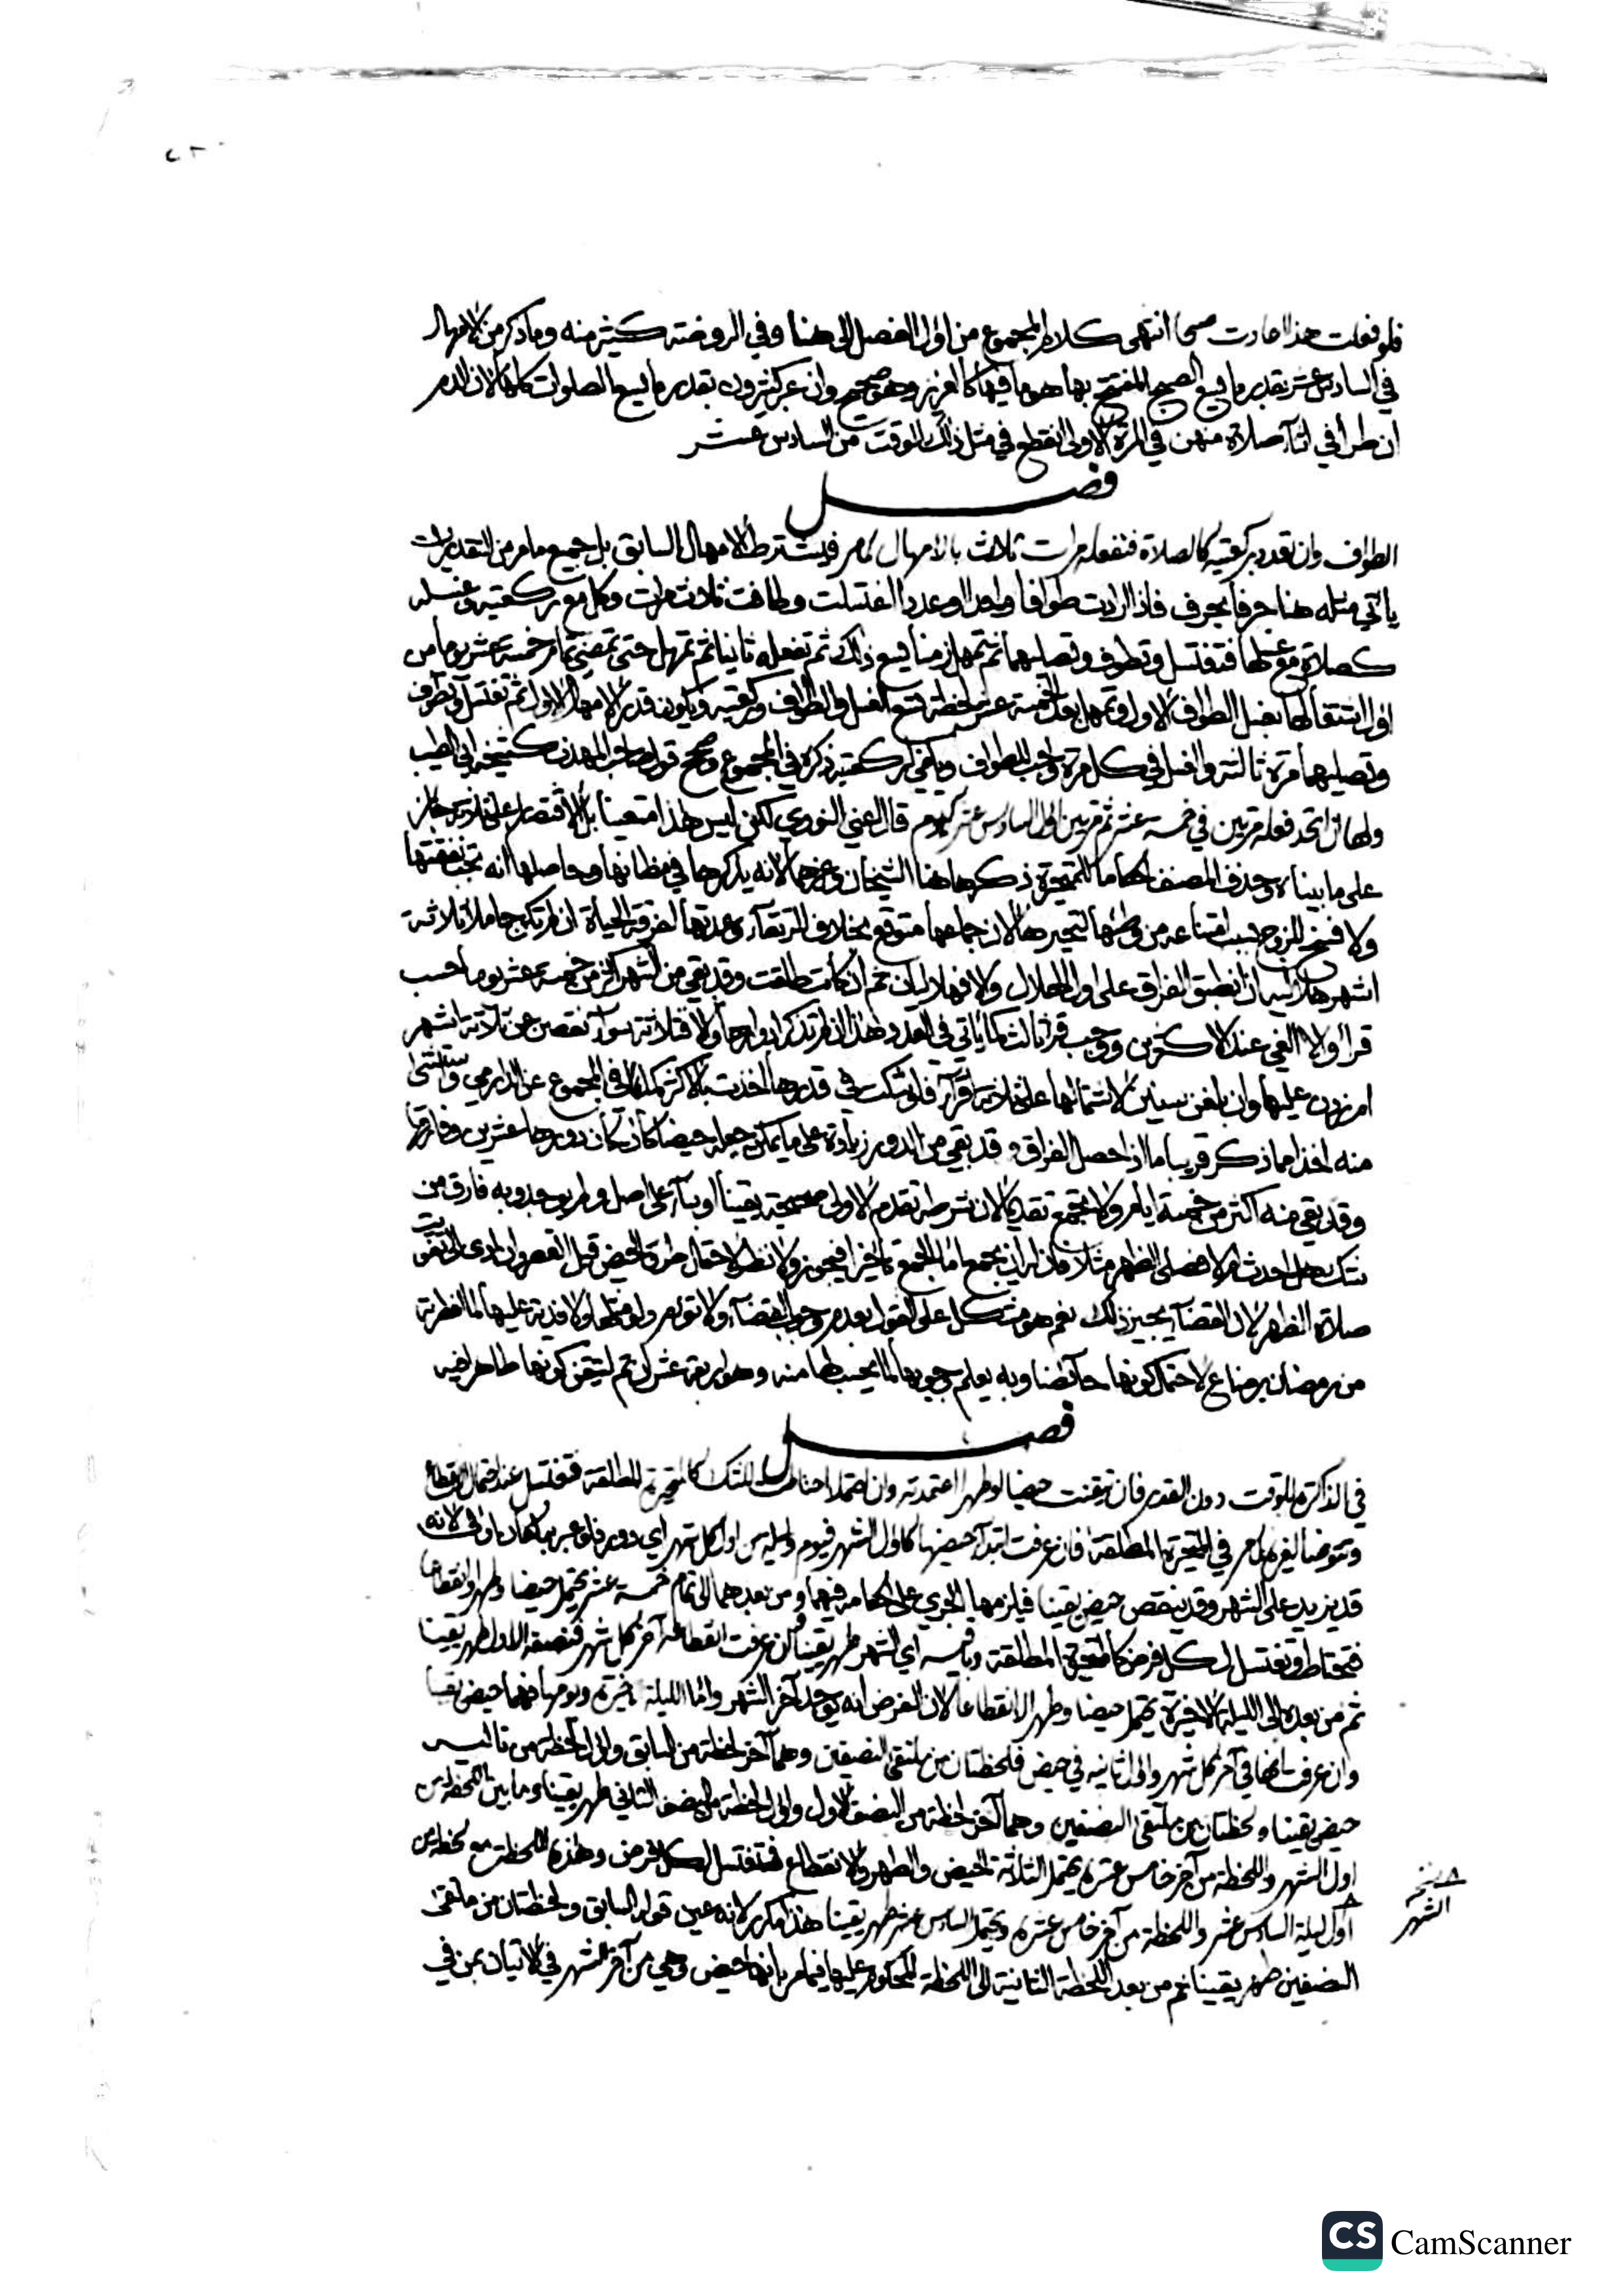 فلو فعلت هذا صارت صبحا انتهى كلام المجموع من اول الفصل الى هنا وفي الروضة كثير منه وما ذكر من الامهال
في السادس عشر بقدر ما يسع الصبح المفتتح بها هو ما فيها كالعزيز وهو صحيح وان عبر كثيرون بقدر ما يسع الصلوات كلها لان الدم
ان طرأ في اثناء صلاة منهن في المرة الاولى انقطع في مثل ذلك الوقت من السادس عشر
فصل
الطواف وان تعدد بركعتيه كالصلاة فتفعله مرات ثلاث بالامهال كما مر فيشترط الامهال السابق بل جميع ما مر من التقديرات
ياتي مثله هنا حرفا بحرف فاذا ارادت طوافا واحدا او عددا اغتسلت وطافت ثلاث مرات وكل مع ركعتيه وغسله
كصلاة مع غسلها فتغتسل وتطوف وتصليهما ثم تمهل زمنا يسع ذلك ثم تفعله ثانيا ثم تمهل حتى تمضي تمام خمسة عشر يوما من
اول اشتغالها بغسل الطواف الاول وتمهل بعد الخمسة عشر لحظة تسع الغسل والطواف وركعتيه ويكون قدر الامهال الاول ثم تغتسل وتطوف
وتصليهما مرة ثالثة والغسل في كل مرة واجب للطواف ويكفي لركعتيه ذكره في المجموع وصحح قول صاحب المهذب كشيخه ابي الطيب
ولها ان اتحد فعله مرتين في خمسة عشر ثم مرتين اول السادس عشر كالصوم قال اعني النووي لكن ليس هذا متعينا بل الاقتصار على ثلاثة جائز
على ما بيناه وحذف المصنف احكاما للمتحيرة ذكرها هنا الشيخان وغيرهما لانه يذكرها في مظانها وحاصلها انه تجب نفقتها
ولا فسخ للزوج بسبب امتناعه من وطئها لتحيرها لان جماعها متوقع بخلاف الرتقاء وعدتها لفرقة الحياة ان لم تكن حاملا ثلاثة
اشهر هلالية ان انطبق الفراق على اول الهلال والا فهلالان ثم ان كانت طلقت وقد بقي من الشهر اكثر من خمسة عشر يوما حسب
قرأ والا الغي عند الاكثرين ووجب قرء ثالث كما ياتي في العدد وهذا ان لم تذكر ادوارها والا فثلاثة سواء نقصن عن ثلاثة اشهر
ام زدن عليها وان بلغن سنين لاشتمالها على ثلاثة أقرآء فلو شكت في قدرها اخذت بالاكثر كما في المجموع عن الدارمي ويستثنى
منه اخذا مما ذكر قريبا ما اذا حصل الفراق وقد بقي من الدور زيادة على ما يمكن جعله حيضا كأن كان دورها عشرين وفارقها
وقد بقي منه اكثر من خمسة ايام ولا تجمع تقديما لان شرطه تقدم الاولى صحيحة يقينا او بناء على اصل ولم يوجد وبه فارق من
شك هل احدث ام لا فصلى الظهر مثلا فان له ان يجمع اما الجمع تاخيرا فيجوز ولا نظر لاحتمال طروء الحيض قبل العصر وان ادى الى تفويت
صلاة الظهر لان القضاء يجبر ذلك نعم هو مشكل على القول بعدم وجوب القضاء ولا تؤم ولو مثلها ولا فدية عليها لما افطرته
من رمضان برضاع لاحتمال كونها حائضا وبه يعلم وجوبها لما يحسب لها منه وهو اربعة عشر ان تم لتيقن كونها طاهرا فيه
فصل
في الذاكرة للوقت دون القدر فان تيقنت حيضا او طهرا اعتمدته وان احتملا احتاطت للشك كالمتحيرة المطلقة فتغتسل عند احتمال الانقطاع
وتتوضأ لغيره كما مر في المتحيرة المطلقة فان عرفت ابتداء حيضها كاول الشهر فيوم وليلة من اول كل شهر اي دور فلو عبر به لكان اولى لانه
قد يزيد على الشهر وقد ينقص حيض يقينا فيلزمها الجري على احكامه فيهما ومن بعدهما الى تمام خمسة عشر يحتمل حيضا وطهرا وانقطاعا
فتحتاط وتغتسل لكل فرض كالمتحيرة المطلقة وباقيه اي الشهر طهر يقينا وان عرفت انقطاعه آخر كل شهر فنصفه الاول طهر يقينا
ثم من بعده الى الليلة الاخيرة يحتمل حيضا وطهرا لا انقطاعا لان الفرض انه يوجد آخر الشهر واما الليلة الاخيرة ويومها فهما حيض يقينا
وان عرفت انها في آخر كل شهر واول ثانيه في حيض فلحظتان من ملتقى النصفين وهما آخر لحظة من السابق واول لحظة من تاليه
حيض يقينا ولحظتان من ملتقى النصفين وهما آخر لحظة من النصف الاول واول لحظة من النصف الثاني طهر يقينا وما بين اللحظة من
اول الشهر واللحظة من آخر خامس عشره يحتمل الثلاثة الحيض والطهر والانقطاع فتغتسل لكل فرض وهذه اللحظة مع لحظة من
اول ليلة السادس عشر واللحظة من آخر خامس عشره ويحتمل السادس عشر طهر يقينا هذا مكرر لانه عين قوله السابق ولحظتان من ملتقى
النصفين طهر يقينا ثم من بعد اللحظة الثانية الى اللحظة المحكوم عليها فيما مر بانها حيض وهي من آخر الشهر في الاتيان بمن في
الشهر
CS CamScanner